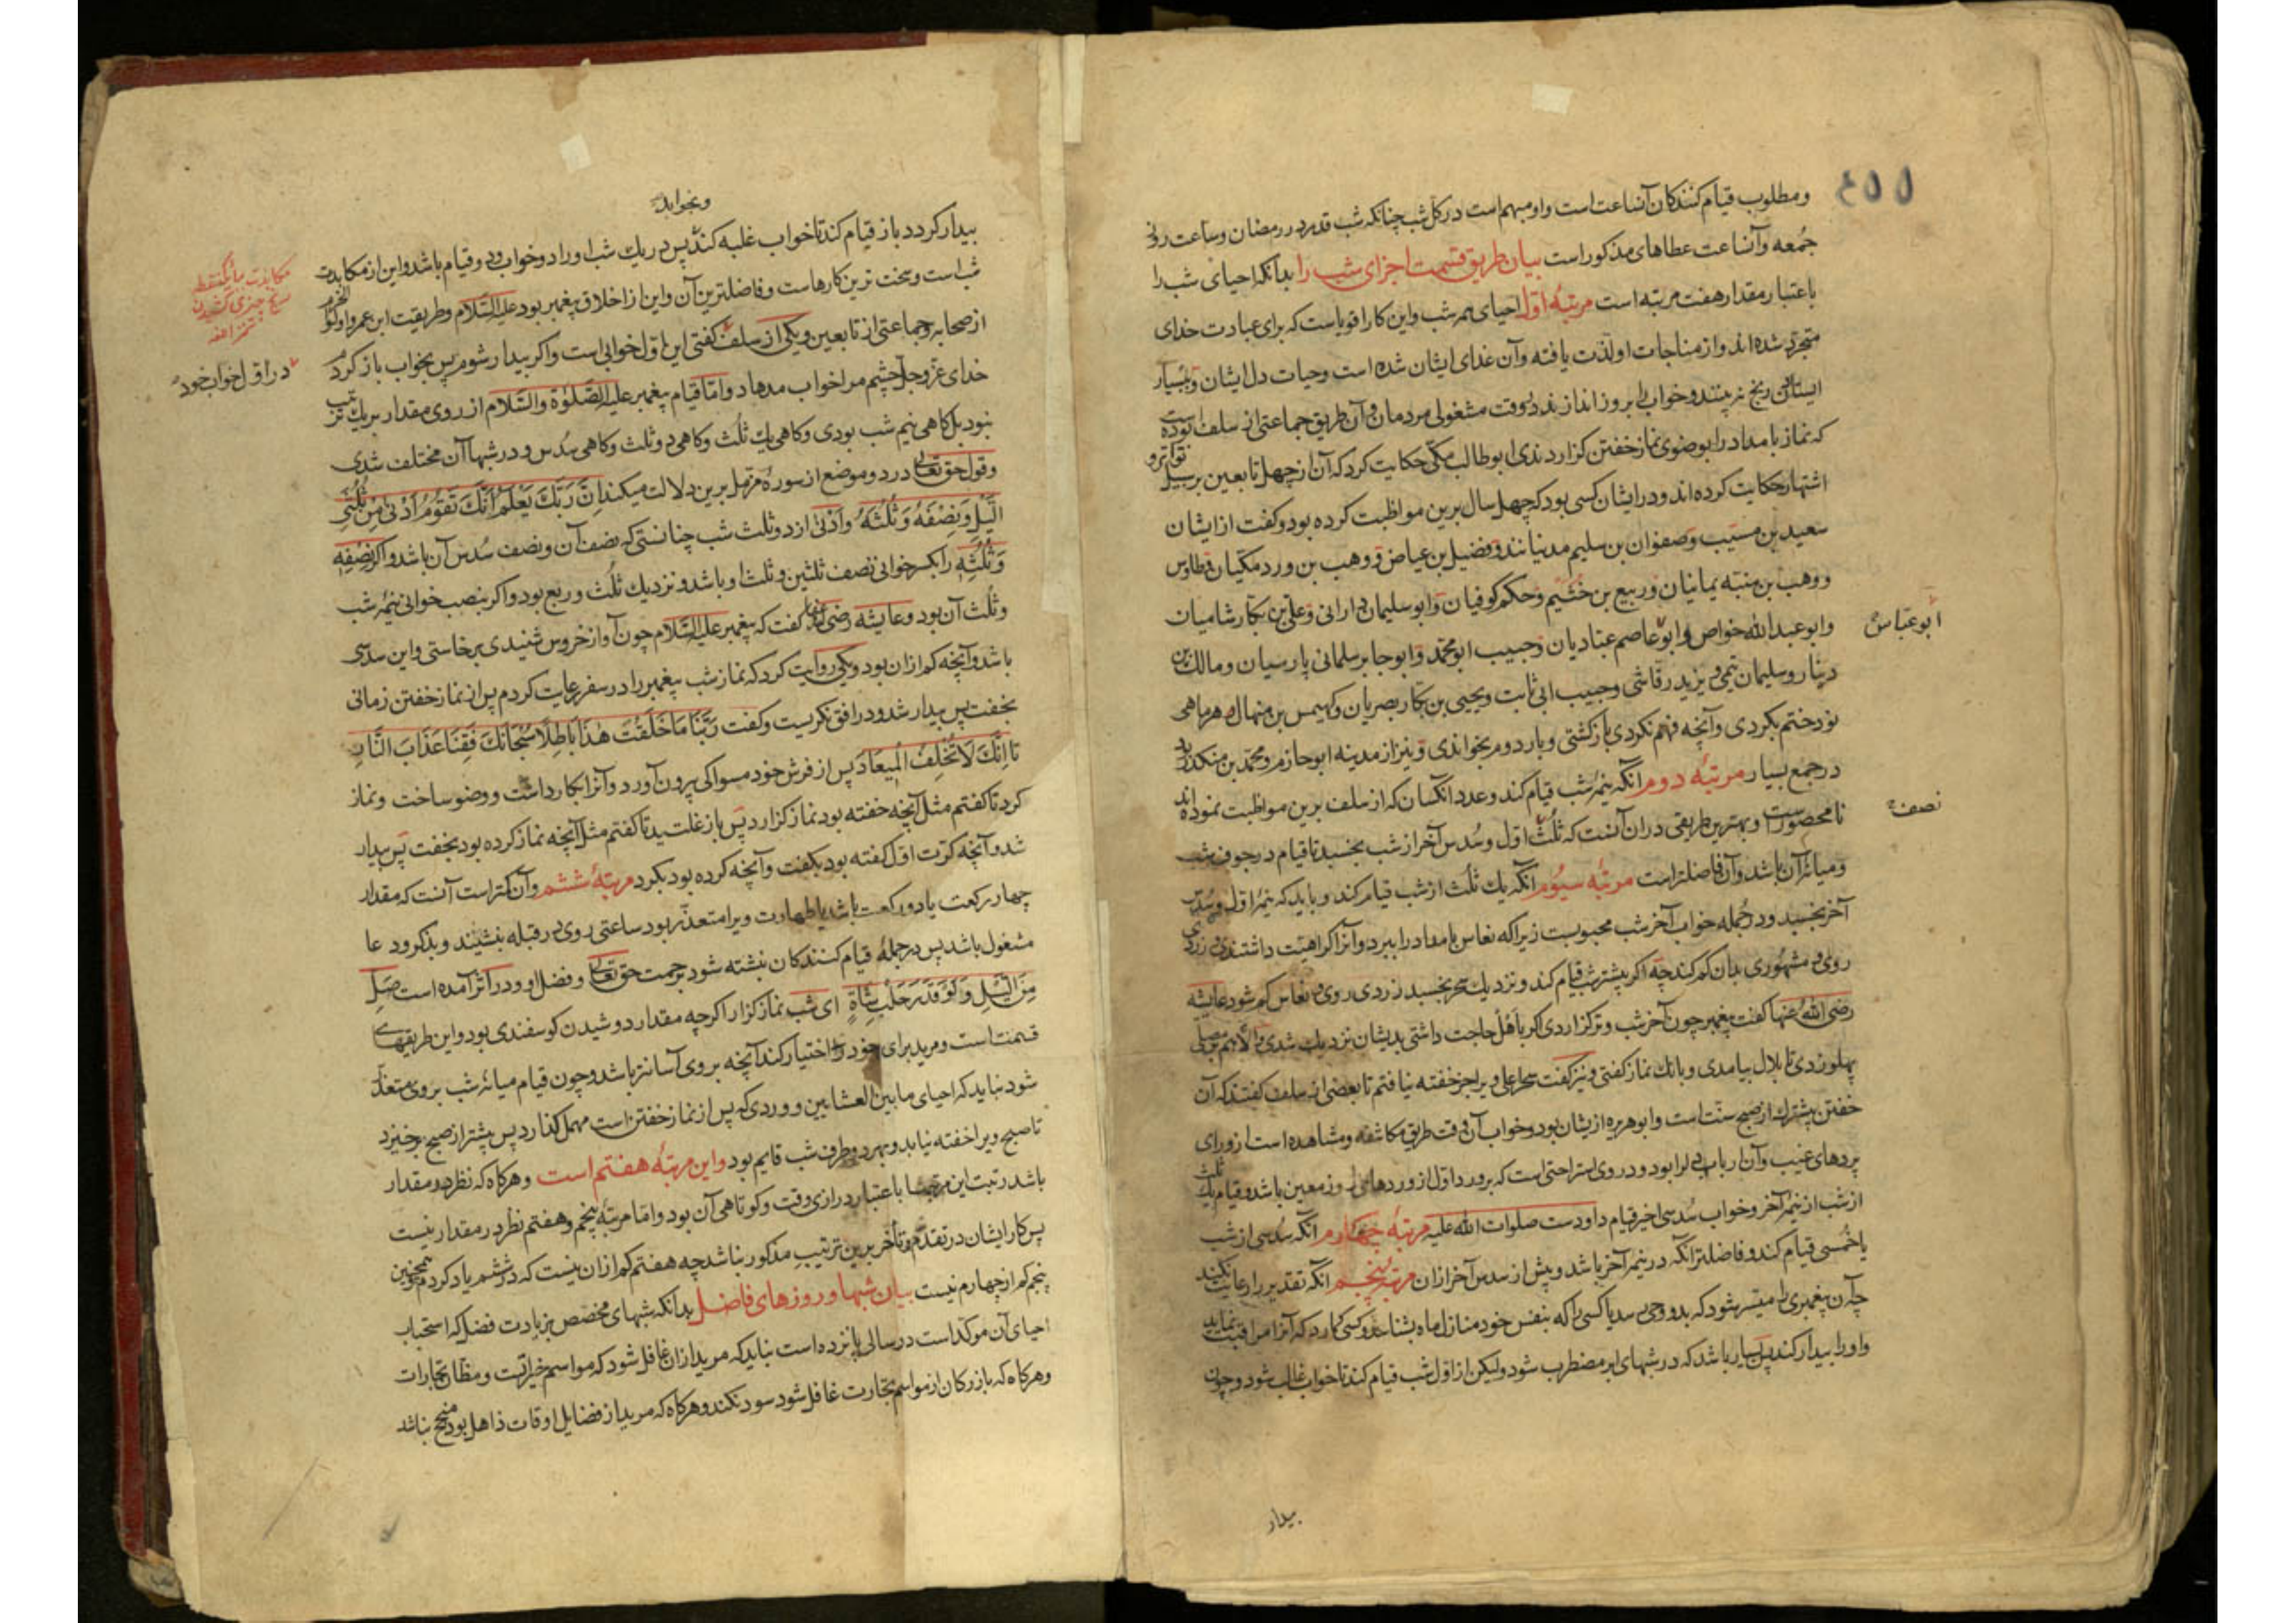 ٤٥٥
ومطلوب قیام کنندکان آن ساعت است واو مبهم است در کل شب چنانکه شب قدر در رمضان وساعت روز
جمعه وآن ساعت عطاهای مذکور است بیان طریق قسمت اجزای شب را بدانکه احیای شب را
باعتبار مقدار هفت مرتبه است مرتبهٔ اول احیای همه شب واین کار اقویاست که برای عبادت خدای
متجرد شده اند واز مناجات او لذت یافته وآن غذای ایشان شده است وحیات دل ایشان وبسیار
ایستادن رنج نه بینند وخواب را بروز اندازند در وقت مشغولی مردمان وآن طریق جماعتی از سلف بوده است
که نماز بامداد را بوضوی نماز خفتن کزاردندی ابو طالب مکی حکایت کرد که آن از چهل تابعین بر سبیل تواتر و
اشتهار حکایت کرده اند ودر ایشان کسی بود که چهل سال برین مواظبت کرده بود وکفت از ایشان
سعید بن مسیب وصفوان بن سلیم مدنیانند وفضیل بن عیاض ووهب بن ورد مکیان وطاوس
ووهب بن منبه یمانیان وربیع بن خثیم وحکم کوفیان وابو سلیمان دارانی وعلی بن بکار شامیان
وابو عبد الله خواص وابو عاصم عبادیان وحبیب ابو محمد وابو جابر سلمانی پارسیان ومالک بن
ابو عباس
دینار وسلیمان تیمی ویزید رقاشی وحبیب ابی ثابت ویحیی بن بکار بصریان وکهیمس بن منهال وهر ماهی
نود ختم بکردی وآنچه فهم نکردی باز کشتی وبار دوم بخواندی ونیز از مدینه ابو حازم ومحمد بن منکدر
در جمع بسیار مرتبهٔ دوم آنکه نیمهٔ شب قیام کند وعدد آنکسان که از سلف برین مواظبت نموده اند
نصف
نا محصور است وبهترین طریقی در آن آنست که ثلث اول وسدس آخر از شب بخسبد تا قیام در جوف شب
ومیانه آن باشد وآن فاضلتر است مرتبه سیوم آنکه یک ثلث از شب قیام کند وباید که نیمهٔ اول وسدس
آخر بخسبد ودر جمله خواب آخر شب محبوبست زیرا که نعاس بامداد را ببرد وآنرا کراهیت داشتندی وزردی
روی ومشهوری بدان کم کند چه اکر بیشتر شب قیام کند ونزدیک سحر بخسبد زردی روی ونعاس کم شود عایشه
رضی الله عنها کفت پیغمبر چون آخر شب وتر کزاردی اکر باهل حاجت داشتی بدیشان نزدیک شدی والا هم بر مصلی
پهلو زدی تا بلال بیامدی وبانک نماز کفتی ونیز کفت سحر اعلی ویرا جز خفته نیافتم تا بعضی از سلف کفتند که آن
خفتن پیشتر ک از صبح سنت است وابو هریره از ایشان بود وخواب آن وقت طریق مکاشفه ومشاهده است از ورای
پردهای غیب وآن ارباب دلرا بود ودر وی استراحتی است که بر ورد اول از وردهای روز معین باشد وقیام یک ثلث
از شب از نیمهٔ آخر وخواب سدسی اخیر قیام داودست صلوات الله علیه مرتبهٔ چهارم آنکه سدسی از شب
یا خمسی قیام کند وفاضلتر آنکه در نیمهٔ آخر باشد وپیش از سدس آخر از آن مرتبهٔ پنجم آنکه تقدیر را رعایت نکند
چه آن پیغمبری را میسر شود که بدو وحی رسد یا کسی را که بنفس خود منازل ماه بشناسد وکسی کمارد که آنرا مراقبت نماید
واو را بیدار کند پس بسیار باشد که در شبهای ابر مضطرب شود ولیکن از اول شب قیام کند تا خواب غالب شود وچون
بیدار
وبخوابد
بیدار کردد باز قیام کند تا خواب غلبه کند پس در یک شب او را دو خواب ودو قیام باشد واین از مکابدت
شب است وسخت ترین کارهاست وفاضلترین آن واین از اخلاق پیغمبر بود علیه السلام وطریقت ابن عمر واولو العزم
از صحابه وجماعتی از تابعین ویکی از سلف کفتی این اول خوابی است واکر بیدار شوم پس بخواب باز کردم
در اول خواب خود
خدای عز وجل چشم مرا خواب مدهاد واما قیام پیغمبر علیه الصلوة والسلام از روی مقدار بر یک ترتیب
نبود بل کاهی نیم شب بودی وکاهی یک ثلث وکاهی دو ثلث وکاهی سدس ودر شبها آن مختلف شدی
وقول حق تعالی در دو موضع از سورهٔ مزمل برین دلالت میکند إِنَّ رَبَّكَ يَعْلَمُ أَنَّكَ تَقُومُ أَدْنَى مِنْ ثُلُثَيِ
اللَّيْلِ وَنِصْفَهُ وَثُلُثَهُ وادنی از دو ثلث شب چنانستی که نصف آن ونصف سدس آن باشد واکر نِصْفِهِ
وَثُلُثِهِ را بکسر خوانی نصف ثلثین وثلث او باشد ونزدیک ثلث وربع بود واکر بنصب خوانی نیمهٔ شب
وثلث آن بود وعایشه رضی عنها کفت که پیغمبر علیه السلام چون آواز خروس شنیدی برخاستی واین سدسی
باشد وآنچه کم از آن بود ویکی روایت کرد که نماز شب پیغمبر را در سفر رعایت کردم پس از نماز خفتن زمانی
بخفت پس بیدار شد ودر افق نکریست وکفت رَبَّنَا مَا خَلَقْتَ هٰذَا بَاطِلًا سُبْحَانَكَ فَقِنَا عَذَابَ النَّارِ
تا إِنَّكَ لَا تُخْلِفُ الْمِيعَادَ پس از فرش خود مسواکی بیرون آورد وآنرا بکار داشت ووضو ساخت ونماز
کرد تا کفتم مثل آنچه خفته بود نماز کزارد پس باز غلتید تا کفتم مثل آنچه نماز کرده بود بخفت پس بیدار
شد وآنچه کرت اول کفته بود بکفت وآنچه کرده بود بکرد مرتبهٔ ششم وآن کمتر است آنست که مقدار
چهار رکعت یا دو رکعت باشد یا طهارت ویرا متعذر بود ساعتی روی در قبله بنشیند وبذکر ودعا
مشغول باشد پس در جملهٔ قیام کنندکان نبشته شود برحمت حق تعالی وفضل او ودر اثر آمده است صَلِّ
مِنَ اللَّيْلِ وَلَوْ قَدْرَ حَلْبِ شَاةٍ ای شب نماز کزار اکر چه مقدار دوشیدن کوسفندی بود واین طریقهای
قسمت است ومرید برای خود را اختیار کند آنچه بر وی آسانتر باشد وچون قیام میانهٔ شب بر وی متعذر
شود نباید که احیای ما بین العشایین ووردی که پس از نماز خفتن است مهمل کذارد پس پیشتر از صبح برخیزد
تا صبح ویرا خفته نیابد وبهر دو طرف شب قایم بود واین مرتبهٔ هفتم است وهرکاه که نظر در مقدار
باشد رتبت این مرتبها باعتبار درازی وقت وکوتاهی آن بود واما مرتبهٔ پنجم وهفتم نظر در مقدار نیست
پس کار ایشان در تقدم وتأخر برین ترتیب مذکور نباشد چه هفتم کم از آن نیست که در ششم یاد کردم وهمچنین
پنجم کم از چهارم نیست بیان شبها وروزهای فاضل بدانکه شبهای مخصص بزیادت فضل که استحباب
احیای آن موکد است در سالی پانزده است نباید که مرید از آن غافل شود که مواسم خیراتست ومظان تجارات
وهرکاه که بازرکان از مواسم تجارت غافل شود سود نکند وهرکاه که مرید از فضایل اوقات ذاهل بود منجح نباشد